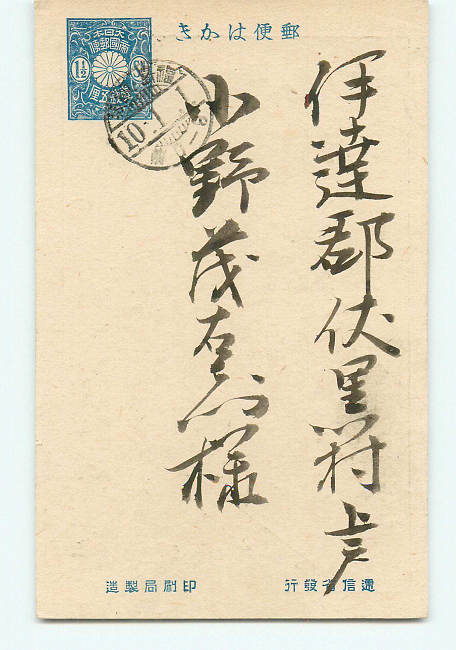 郵便はかき
大日本
帝國郵便
1½
壹錢五厘
10.1.1
伊達郡伏黒村上戸
小野茂
様
遞信省發行
印刷局製造